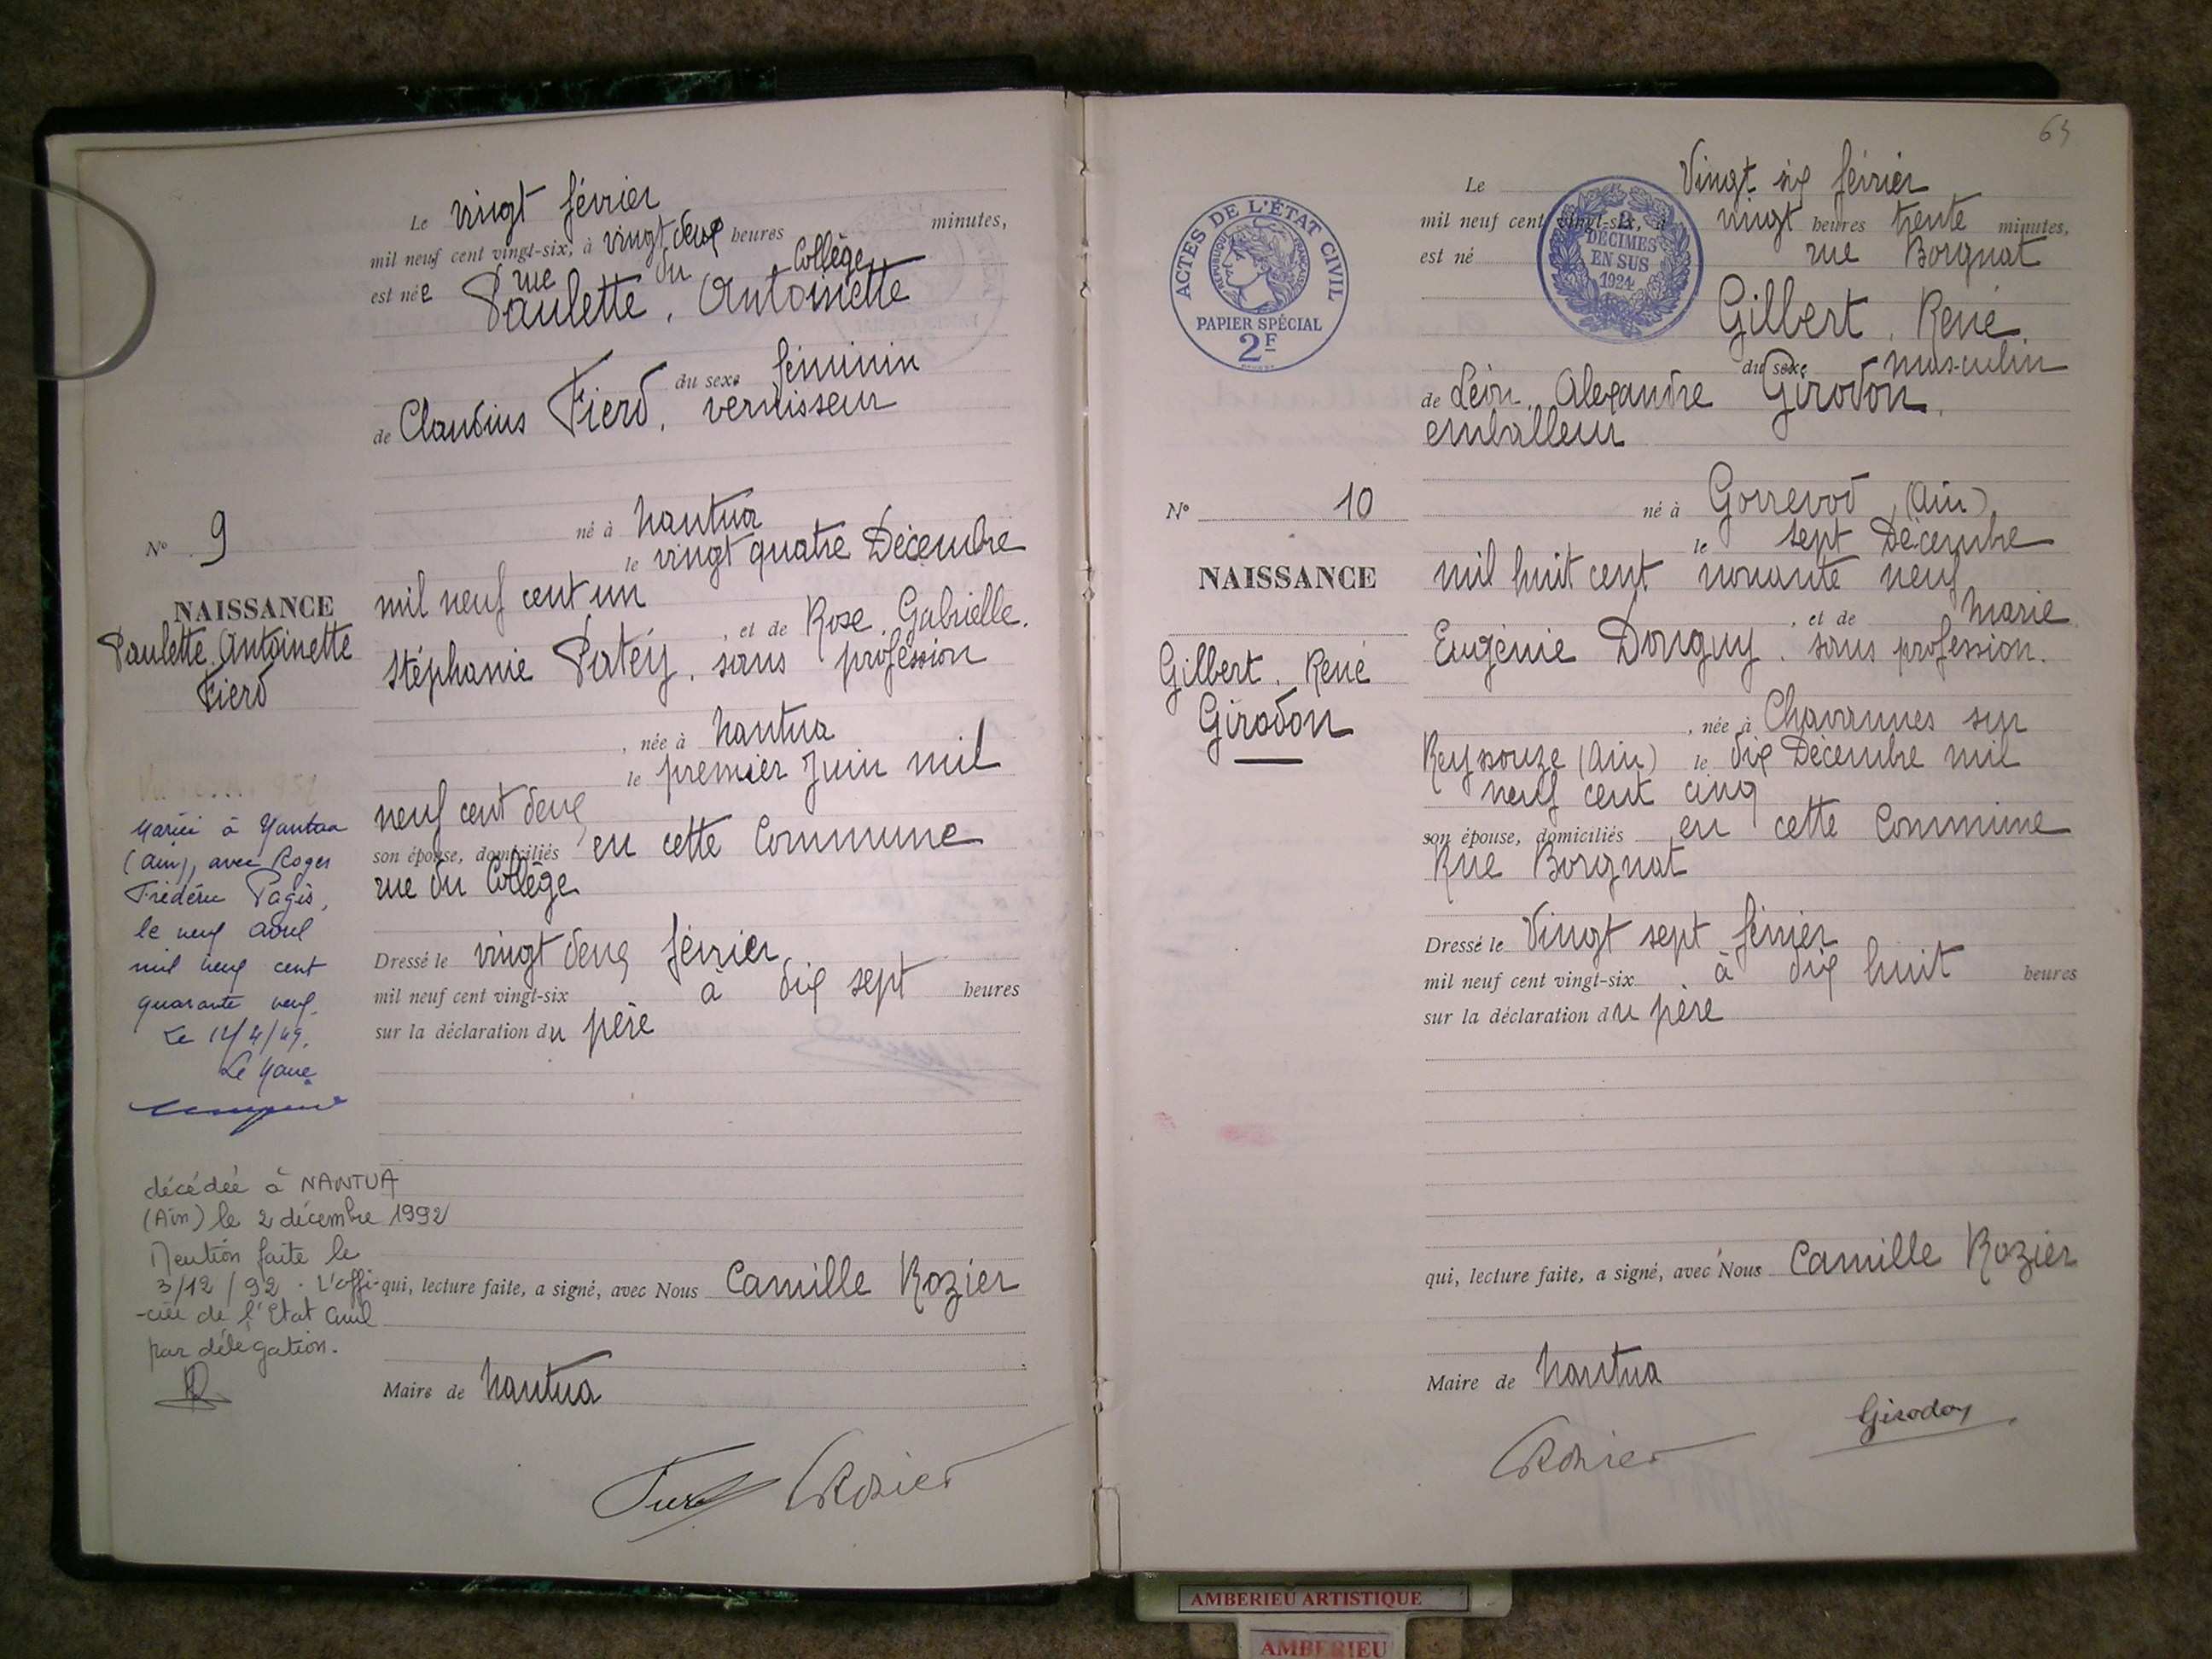 Le vingt février
mil neuf cent vingt-six, à vingt deux heures minutes,
est née rue du Collège
Paulette, Antoinette
du sexe féminin
de Claudius Fierd, vernisseur
né à Nantua
le vingt quatre Décembre
mil neuf cent un
, et de Rose, Gabrielle,
Stéphanie Patey, sans profession
, née à Nantua
le premier Juin mil
neuf cent deux
son épouse, domiciliés en cette Commune
rue du Collège
Dressé le vingt deux février
mil neuf cent vingt-six à dix sept heures
sur la déclaration du père
qui, lecture faite, a signé, avec Nous Camille Rozier
Maire de Nantua
CRozier
N° 9
NAISSANCE
Paulette, Antoinette
Fierd
Mariée à Nantua
(Ain), avec Roger
Frédéric Pagès,
le neuf avril
mil neuf cent
quarante neuf.
Le 14/4/49.
Le Maire
décédée à NANTUA
(Ain) le 2 décembre 1992
Mention faite le
3/12/92. L'offi-
-cier de l'Etat Civil
par délégation.
63
ACTES DE L'ÉTAT CIVIL
RÉPUBLIQUE FRANÇAISE
PAPIER SPÉCIAL
2F
2
DÉCIMES
EN SUS
1924
Le Vingt six février
mil neuf cent vingt-six, à vingt heures trente minutes,
est né rue Borgnat
Gilbert, René,
du sexe masculin
de Léon, Alexandre Girodon,
emballeur
né à Gorrevod (Ain)
le sept Décembre
mil huit cent nonante neuf
, et de Marie
Eugénie Donguy, sans profession.
, née à Chavannes sur
Reyssouze (Ain) le dix Décembre mil
neuf cent cinq
son épouse, domiciliés en cette Commune
Rue Borgnat
Dressé le Vingt sept février
mil neuf cent vingt-six à dix huit heures
sur la déclaration du père
qui, lecture faite, a signé, avec Nous Camille Rozier
Maire de Nantua
CRozier Girodon
N° 10
NAISSANCE
Gilbert, René
Girodon
AMBERIEU ARTISTIQUE
AMBERIEU